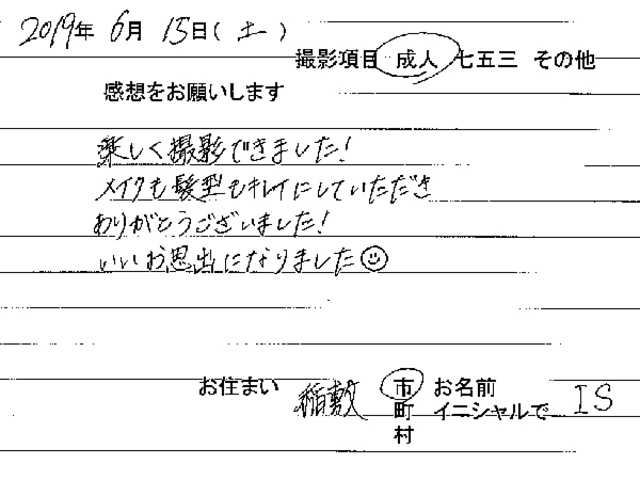 2019年 6月 15日(土)
撮影項目 成人 七五三 その他
感想をお願いします
楽しく撮影できました!
メイクも髪型もキレイにしていただき
ありがとうございました!
いいお思出になりました☺
お住まい 稲敷 市 お名前
町 イニシャルで IS
村